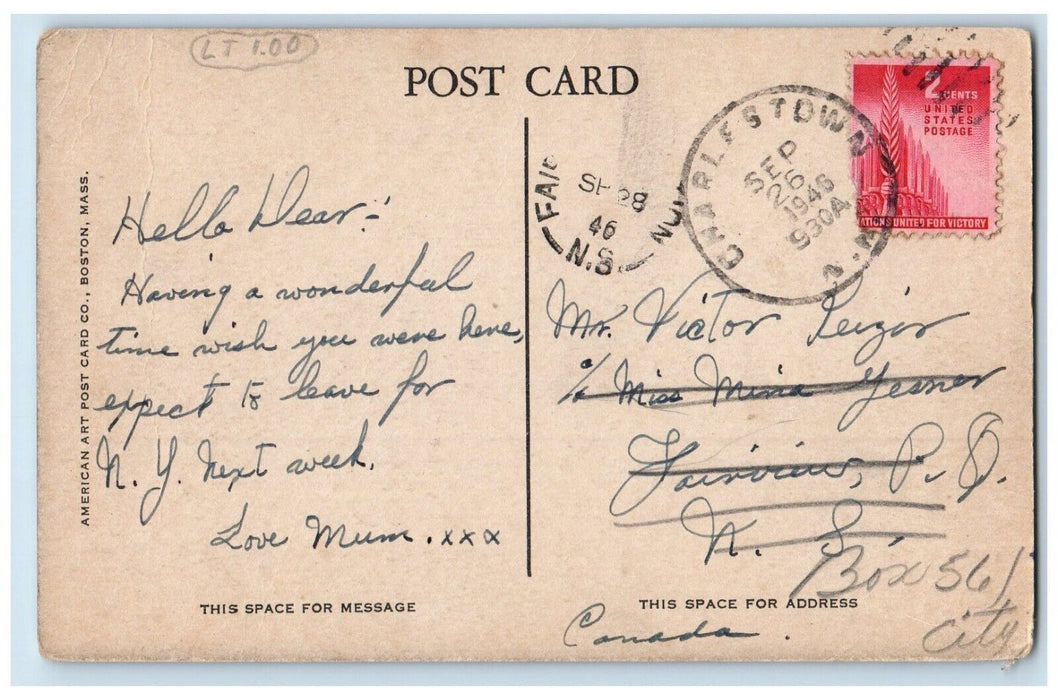 LT 1.00
POST CARD
CHARLESTOWN
SEP
26
1946
930A
N.H.
FAI
SE 28
46
N.S.
2 CENTS
UNITED
STATES
POSTAGE
ATIONS UNITED FOR VICTORY
AMERICAN ART POST CARD CO., BOSTON, MASS.
Hello Dear:-
Having a wonderful
time wish you were here,
expect to leave for
N. Y. Next week.
Love Mum. xxx
THIS SPACE FOR MESSAGE
Mr. Victor
c/o Miss Mina
Fairview, P. O.
N. S.
Box 561
City
THIS SPACE FOR ADDRESS
Canada.